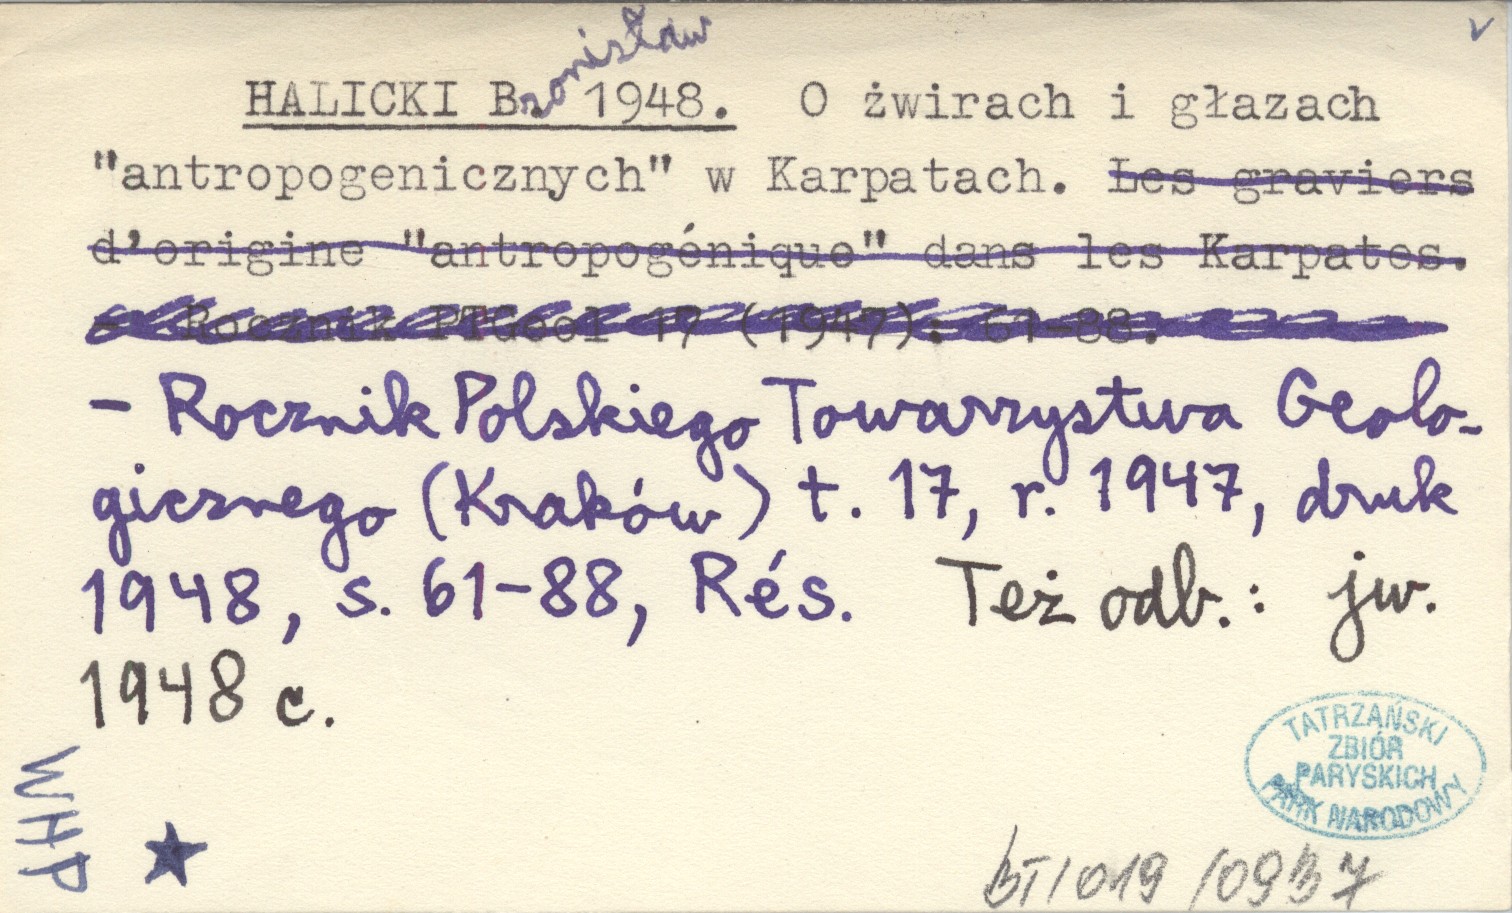 HALICKI Bronisław 1948. O żwirach i głazach
"antropogenicznych" w Karpatach. Les graviers
d'origine "antropogénique" dans les Karpates.
- Rocznik PTGeol 17 (1947): 61-88.
- Rocznik Polskiego Towarzystwa Geolo-
gicznego (Kraków) t. 17, r. 1947, druk
1948, s. 61-88, Rés. Też odb.: jw.
1948 c.
WHP
TATRZAŃSKI
ZBIÓR
PARYSKICH
PARK NARODOWY
BT/019/0937